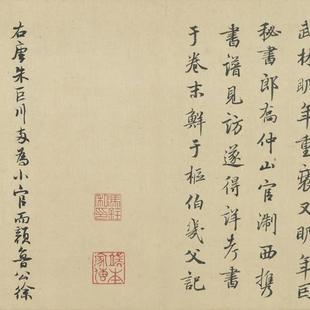 武林明年重裝又明年
秘書郎喬仲山官浙西攜
書譜見訪遂得詳考書
于卷末鮮于樞伯幾父記
右唐朱巨川兩為小官而顏魯公徐